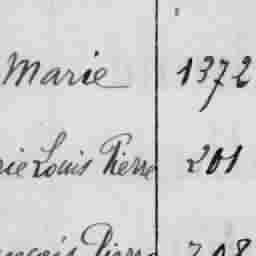 Marie 1372
rie Louis Pierre 201
ançois Pierre 208